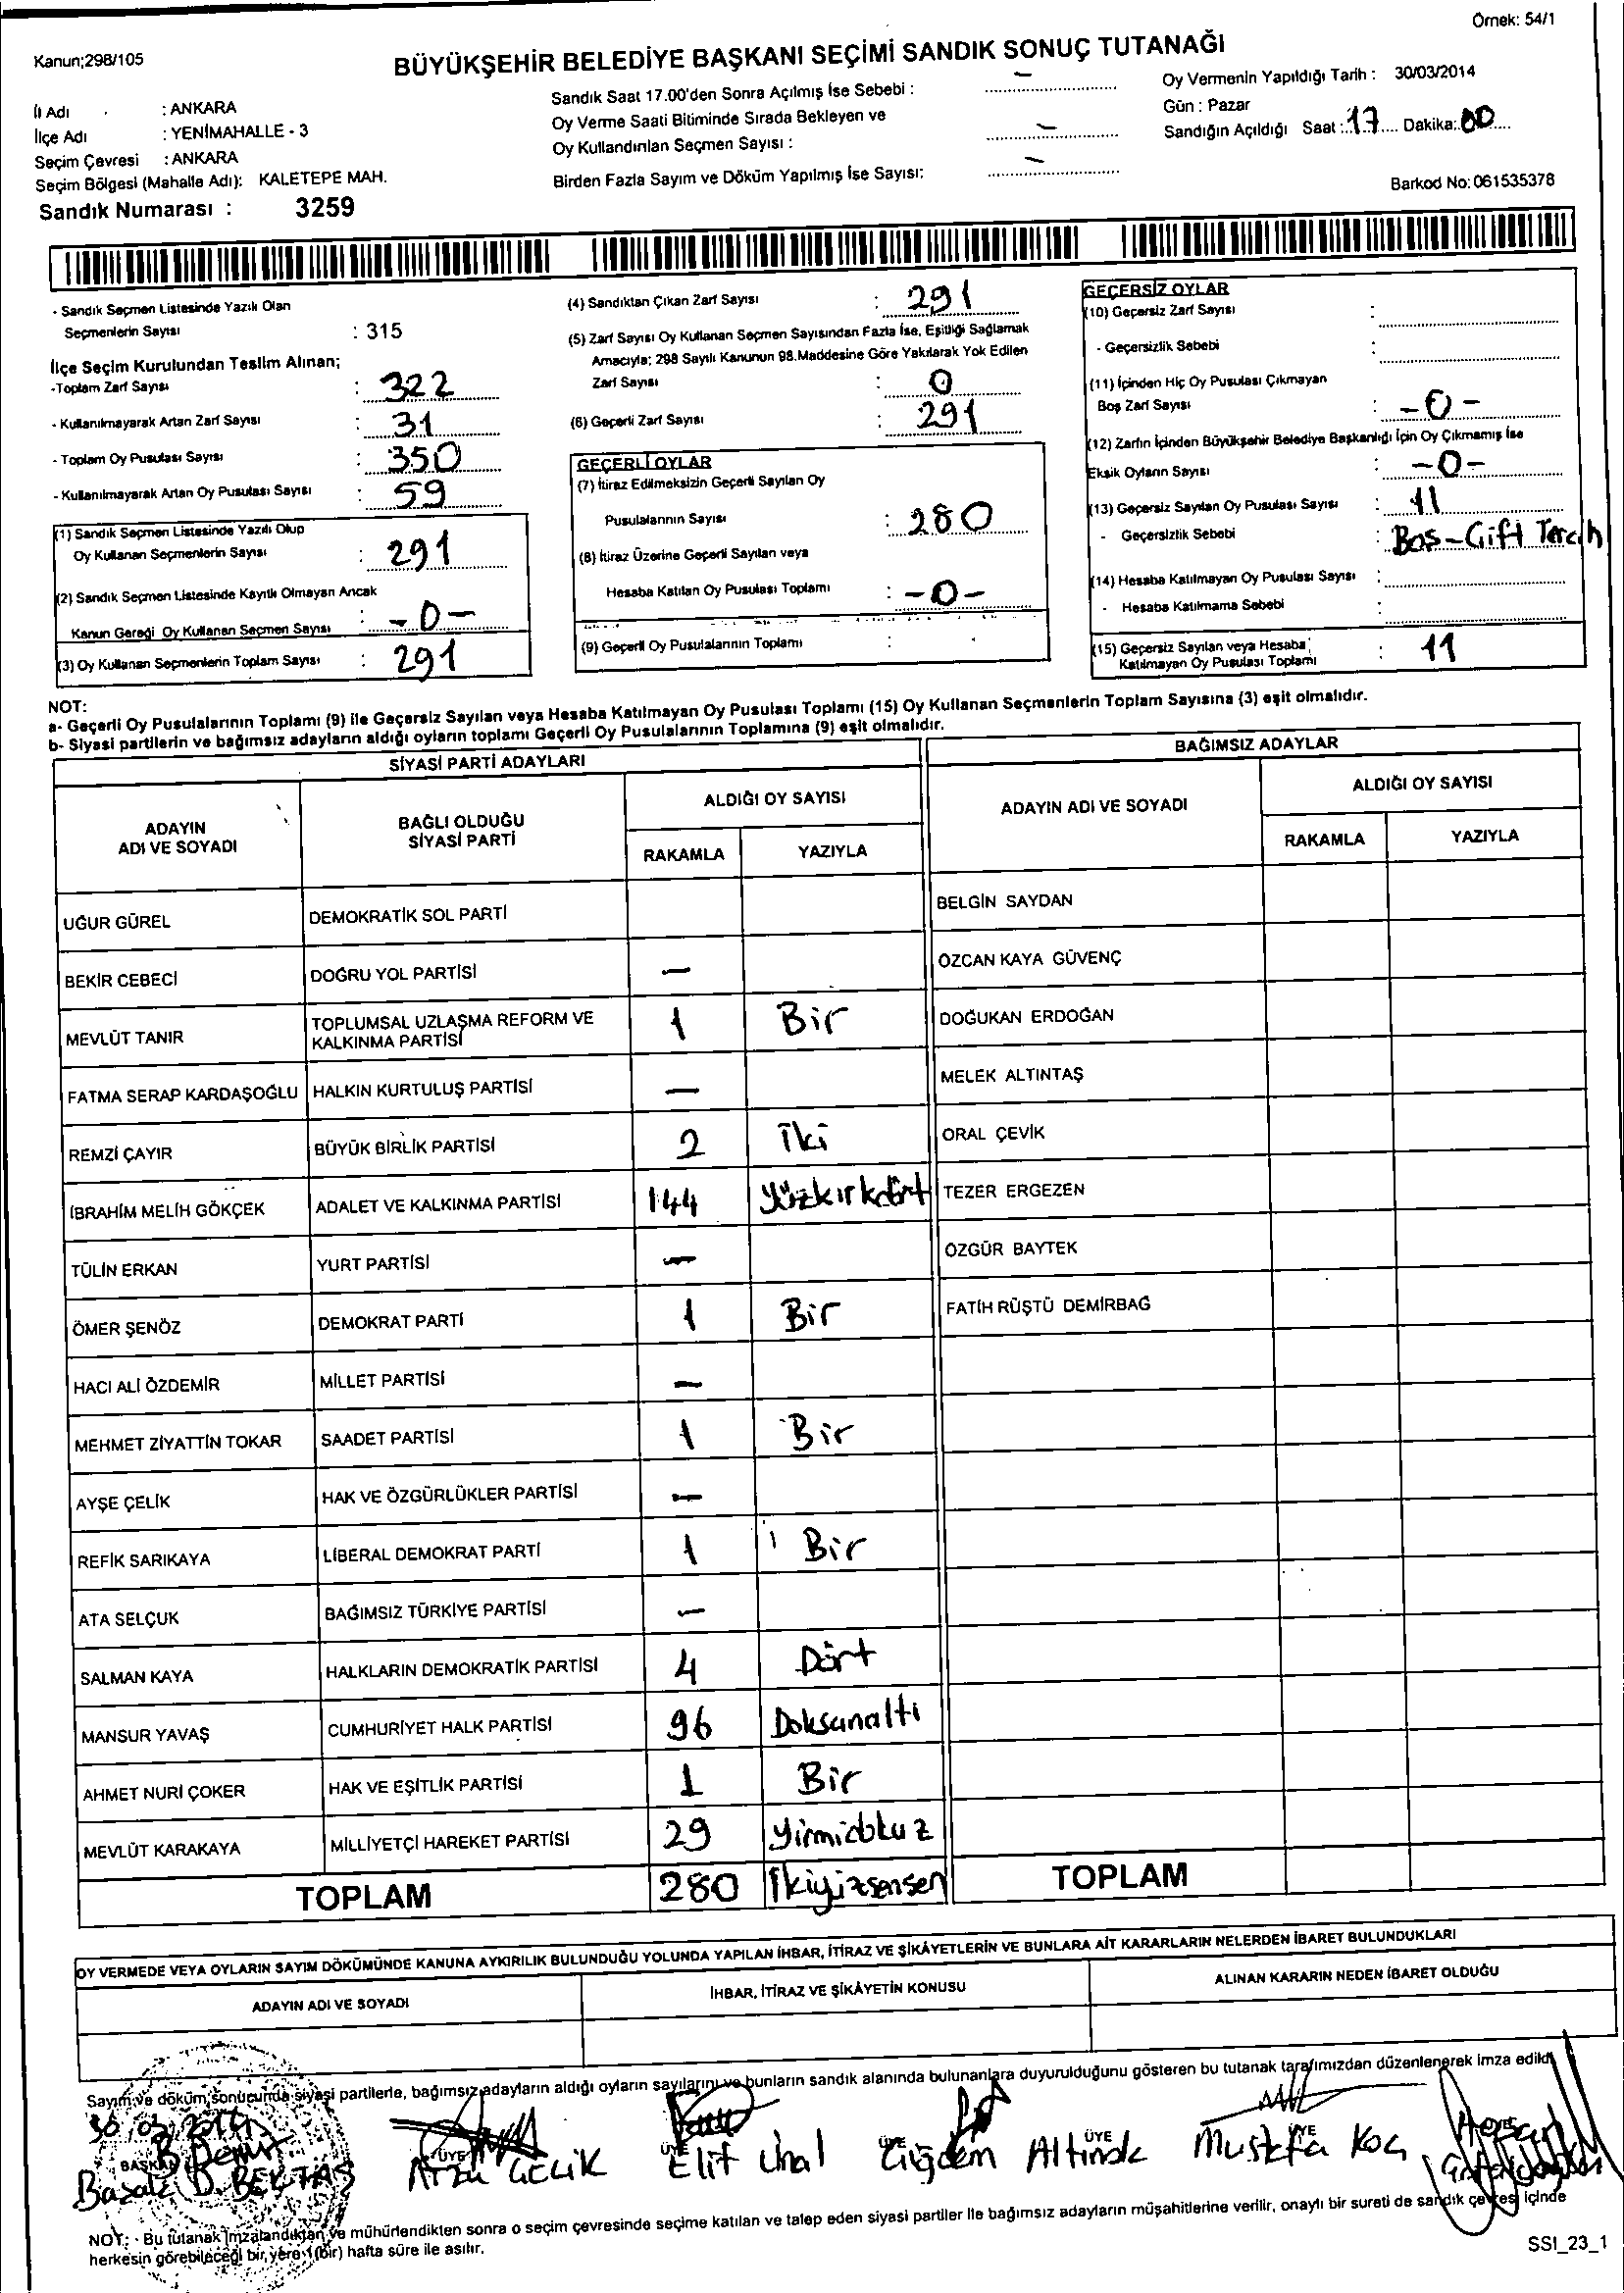 Örnek: 54/1
Kanun;298/105
BÜYÜKŞEHİR BELEDİYE BAŞKANI SEÇİMİ SANDIK SONUÇ TUTANAĞI
İl Adı : ANKARA
İlçe Adı : YENİMAHALLE - 3
Seçim Çevresi : ANKARA
Seçim Bölgesi (Mahalle Adı): KALETEPE MAH.
Sandık Numarası : 3259
Sandık Saat 17.00'den Sonra Açılmış İse Sebebi : —
Oy Verme Saati Bitiminde Sırada Bekleyen ve
Oy Kullandırılan Seçmen Sayısı : —
Birden Fazla Sayım ve Döküm Yapılmış İse Sayısı: —
Oy Vermenin Yapıldığı Tarih : 30/03/2014
Gün : Pazar
Sandığın Açıldığı Saat : 17 Dakika: 00
Barkod No: 061535378
- Sandık Seçmen Listesinde Yazılı Olan
Seçmenlerin Sayısı : 315
İlçe Seçim Kurulundan Teslim Alınan;
-Toplam Zarf Sayısı : 322
- Kullanılmayarak Artan Zarf Sayısı : 31
- Toplam Oy Pusulası Sayısı : 350
- Kullanılmayarak Artan Oy Pusulası Sayısı : 59
(1) Sandık Seçmen Listesinde Yazılı Olup
Oy Kullanan Seçmenlerin Sayısı : 291
(2) Sandık Seçmen Listesinde Kayıtlı Olmayan Ancak
Kanun Gereği Oy Kullanan Seçmen Sayısı : -0-
(3) Oy Kullanan Seçmenlerin Toplam Sayısı : 291
(4) Sandıktan Çıkan Zarf Sayısı : 291
(5) Zarf Sayısı Oy Kullanan Seçmen Sayısından Fazla İse, Eşitliği Sağlamak
Amacıyla; 298 Sayılı Kanunun 98.Maddesine Göre Yakılarak Yok Edilen
Zarf Sayısı : 0
(6) Geçerli Zarf Sayısı : 291
GEÇERLİ OYLAR
(7) İtiraz Edilmeksizin Geçerli Sayılan Oy
Pusulalarının Sayısı : 280
(8) İtiraz Üzerine Geçerli Sayılan veya
Hesaba Katılan Oy Pusulası Toplamı : -0-
(9) Geçerli Oy Pusulalarının Toplamı :
GEÇERSİZ OYLAR
(10) Geçersiz Zarf Sayısı :
- Geçersizlik Sebebi :
(11) İçinden Hiç Oy Pusulası Çıkmayan
Boş Zarf Sayısı : -0-
(12) Zarfın İçinden Büyükşehir Belediye Başkanlığı İçin Oy Çıkmamış İse
Eksik Oyların Sayısı : -0-
(13) Geçersiz Sayılan Oy Pusulası Sayısı : 11
- Geçersizlik Sebebi : Boş-Çift Tercih
(14) Hesaba Katılmayan Oy Pusulası Sayısı :
- Hesaba Katılmama Sebebi :
(15) Geçersiz Sayılan veya Hesaba
Katılmayan Oy Pusulası Toplamı : 11
NOT:
a- Geçerli Oy Pusulalarının Toplamı (9) ile Geçersiz Sayılan veya Hesaba Katılmayan Oy Pusulası Toplamı (15) Oy Kullanan Seçmenlerin Toplam Sayısına (3) eşit olmalıdır.
b- Siyasi partilerin ve bağımsız adayların aldığı oyların toplamı Geçerli Oy Pusulalarının Toplamına (9) eşit olmalıdır.
SİYASİ PARTİ ADAYLARI
ADAYIN
ADI VE SOYADI
BAĞLI OLDUĞU
SİYASİ PARTİ
ALDIĞI OY SAYISI
RAKAMLA YAZIYLA
UĞUR GÜREL DEMOKRATİK SOL PARTİ
BEKİR CEBECİ DOĞRU YOL PARTİSİ —
MEVLÜT TANIR TOPLUMSAL UZLAŞMA REFORM VE
KALKINMA PARTİSİ 1 Bir
FATMA SERAP KARDAŞOĞLU HALKIN KURTULUŞ PARTİSİ —
REMZİ ÇAYIR BÜYÜK BİRLİK PARTİSİ 2 İki
İBRAHİM MELİH GÖKÇEK ADALET VE KALKINMA PARTİSİ 144 Yüzkırkdört
TÜLİN ERKAN YURT PARTİSİ —
ÖMER ŞENÖZ DEMOKRAT PARTİ 1 Bir
HACI ALİ ÖZDEMİR MİLLET PARTİSİ —
MEHMET ZİYATTİN TOKAR SAADET PARTİSİ 1 Bir
AYŞE ÇELİK HAK VE ÖZGÜRLÜKLER PARTİSİ —
REFİK SARIKAYA LİBERAL DEMOKRAT PARTİ 1 Bir
ATA SELÇUK BAĞIMSIZ TÜRKİYE PARTİSİ —
SALMAN KAYA HALKLARIN DEMOKRATİK PARTİSİ 4 Dört
MANSUR YAVAŞ CUMHURİYET HALK PARTİSİ 96 Doksanaltı
AHMET NURİ ÇOKER HAK VE EŞİTLİK PARTİSİ 1 Bir
MEVLÜT KARAKAYA MİLLİYETÇİ HAREKET PARTİSİ 29 Yirmidokuz
TOPLAM 280 İkiyüzsensen
BAĞIMSIZ ADAYLAR
ADAYIN ADI VE SOYADI
ALDIĞI OY SAYISI
RAKAMLA YAZIYLA
BELGİN SAYDAN
ÖZCAN KAYA GÜVENÇ
DOĞUKAN ERDOĞAN
MELEK ALTINTAŞ
ORAL ÇEVİK
TEZER ERGEZEN
ÖZGÜR BAYTEK
FATİH RÜŞTÜ DEMİRBAĞ
TOPLAM
OY VERMEDE VEYA OYLARIN SAYIM DÖKÜMÜNDE KANUNA AYKIRILIK BULUNDUĞU YOLUNDA YAPILAN İHBAR, İTİRAZ VE ŞİKÂYETLERİN VE BUNLARA AİT KARARLARIN NELERDEN İBARET BULUNDUKLARI
ADAYIN ADI VE SOYADI
İHBAR, İTİRAZ VE ŞİKÂYETİN KONUSU
ALINAN KARARIN NEDEN İBARET OLDUĞU
Sayım ve döküm sonucunda siyasi partilerle, bağımsız adayların aldığı oyların sayılarını ve bunların sandık alanında bulunanlara duyurulduğunu gösteren bu tutanak tarafımızdan düzenlenerek imza edildi.
30/03/2014
BAŞKAN ÜYE ÜYE ÜYE ÜYE ÜYE
D. BEKTAŞ
Arzu ÇELİK
Elif Ünal
Çiğdem
Mustafa Koç
Hasan
NOT: - Bu tutanak imzalandıktan ve mühürlendikten sonra o seçim çevresinde seçime katılan ve talep eden siyasi partiler ile bağımsız adayların müşahitlerine verilir, onaylı bir sureti de sandık çevresi içinde
herkesin görebileceği bir yere 1 (bir) hafta süre ile asılır.
SSI_23_1